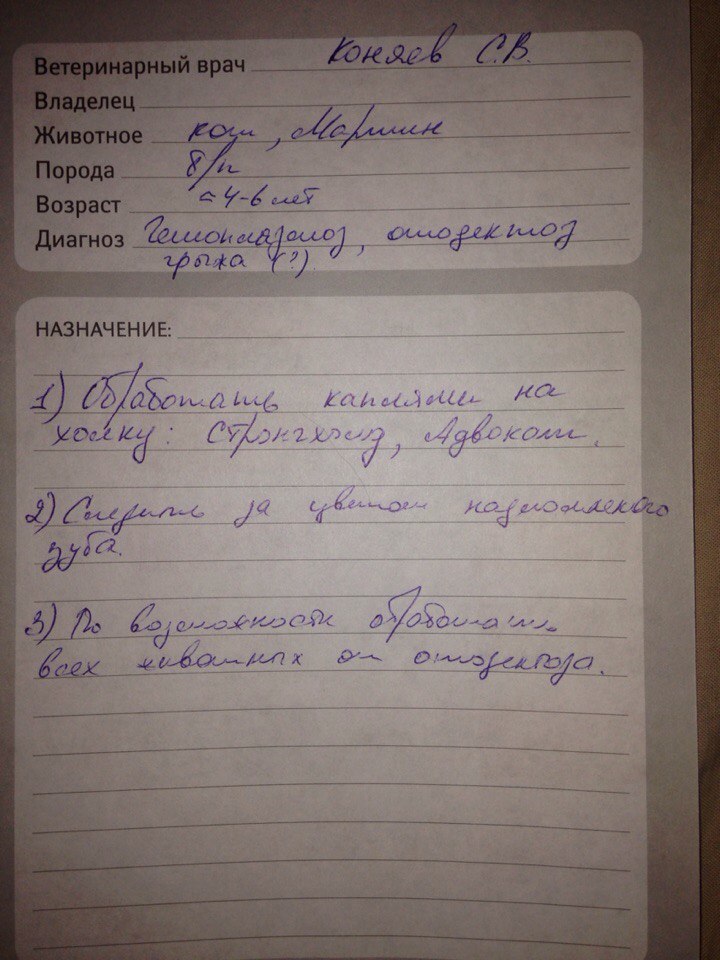 Ветеринарный врач Коняев С.В.
Владелец
Животное кот, Мартин
Порода б/п
Возраст ≈ 4-6 лет
Диагноз Гемоплазмоз, отодектоз
грыжа (?).
НАЗНАЧЕНИЕ:
1) Обработать каплями на
холку: Стронгхолд, Адвокат.
2) Следить за цветом надломленого
зуба.
3) По возможности обработать
всех животных от отодектоза.